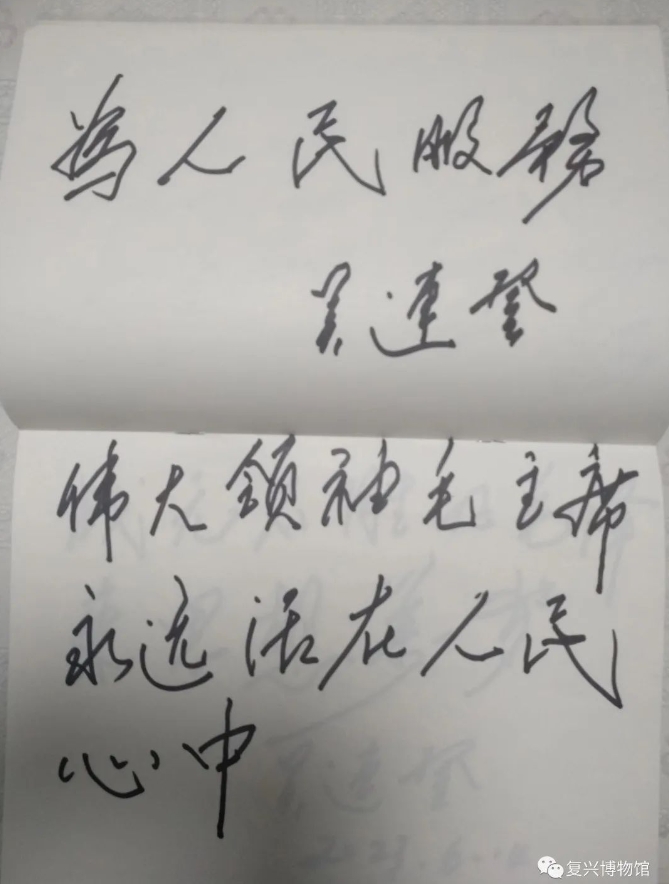 為人民服務
吴连登
伟大領袖毛主席
永远活在人民
心中
复兴博物馆